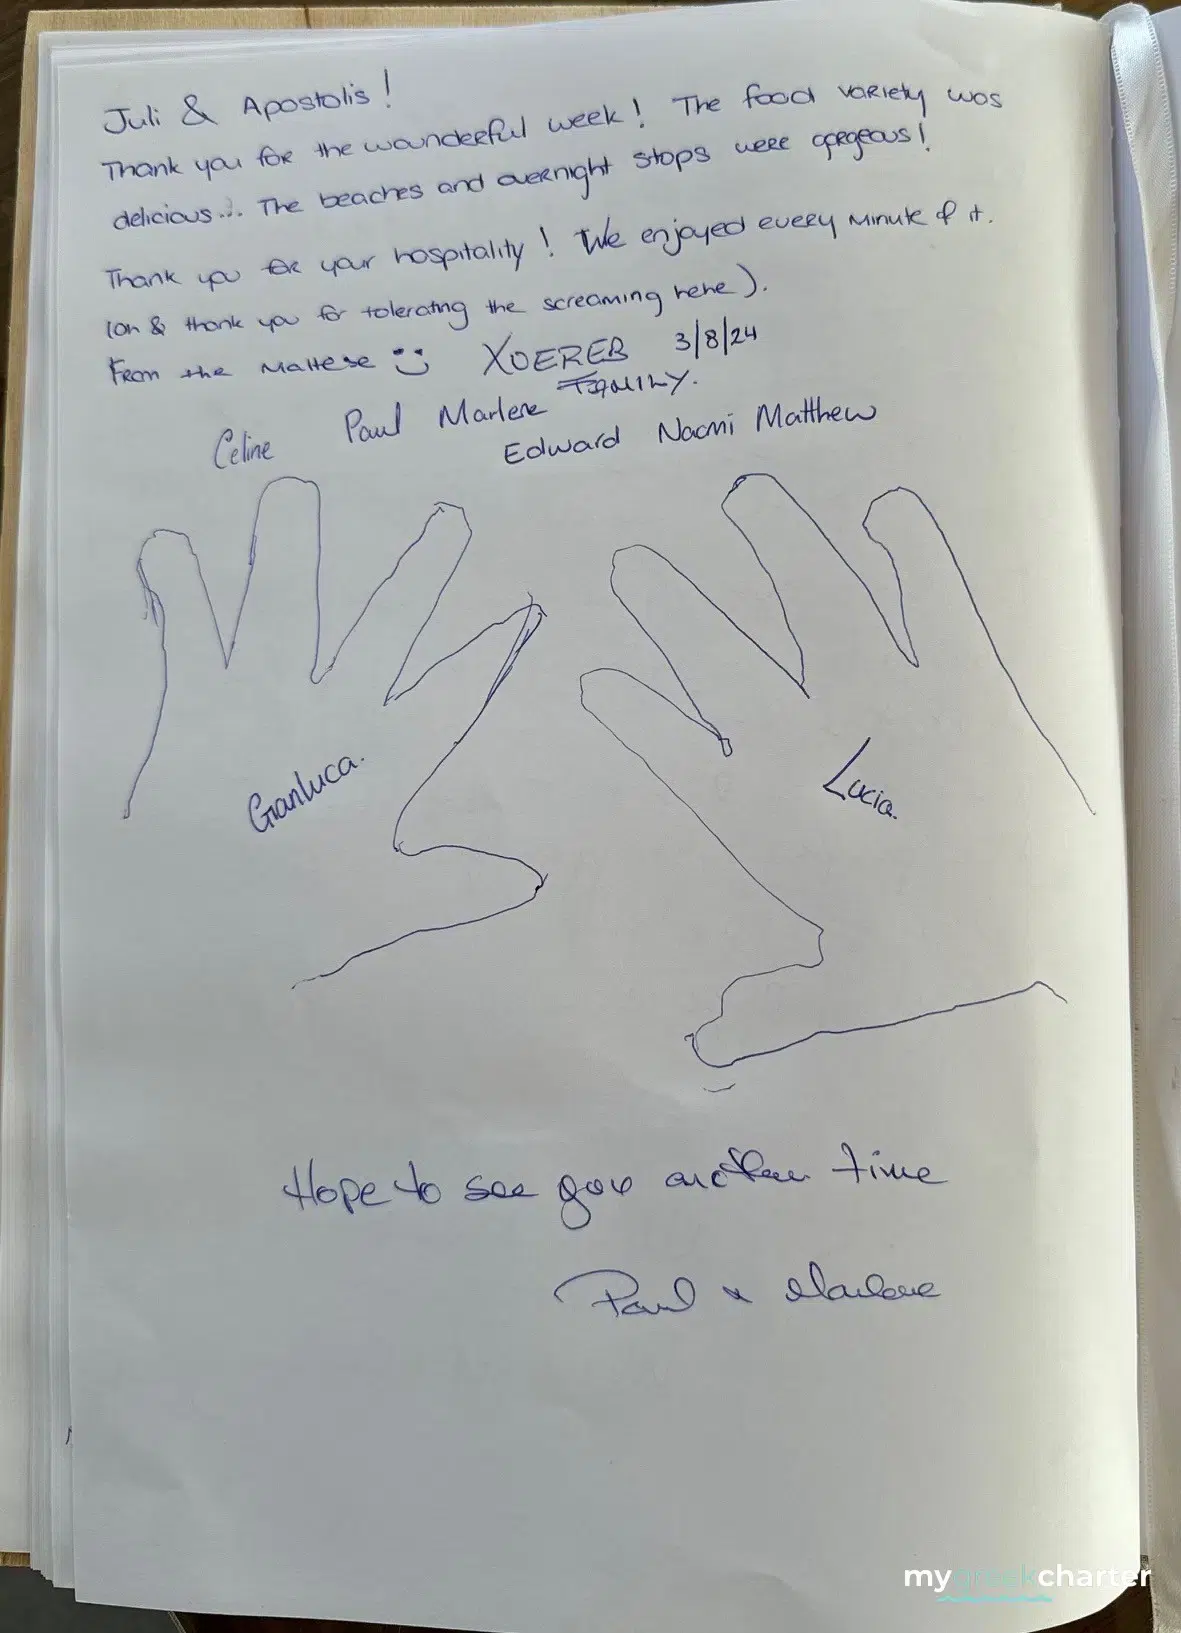 Juli & Apostolis!
Thank you for the wounderful week! The food variety was
delicious... The beaches and overnight stops were gorgeous!
Thank you for your hospitality! We enjoyed every minute of it.
(oh & thank you for tolerating the screaming hehe).
From the Maltese :)
XUEREB 3/8/24
FAMILY.
Celine Paul Marlene
Edward Naomi Matthew
Gianluca.
Lucia.
Hope to see you another time
Paul & Marlene
mygreekcharter